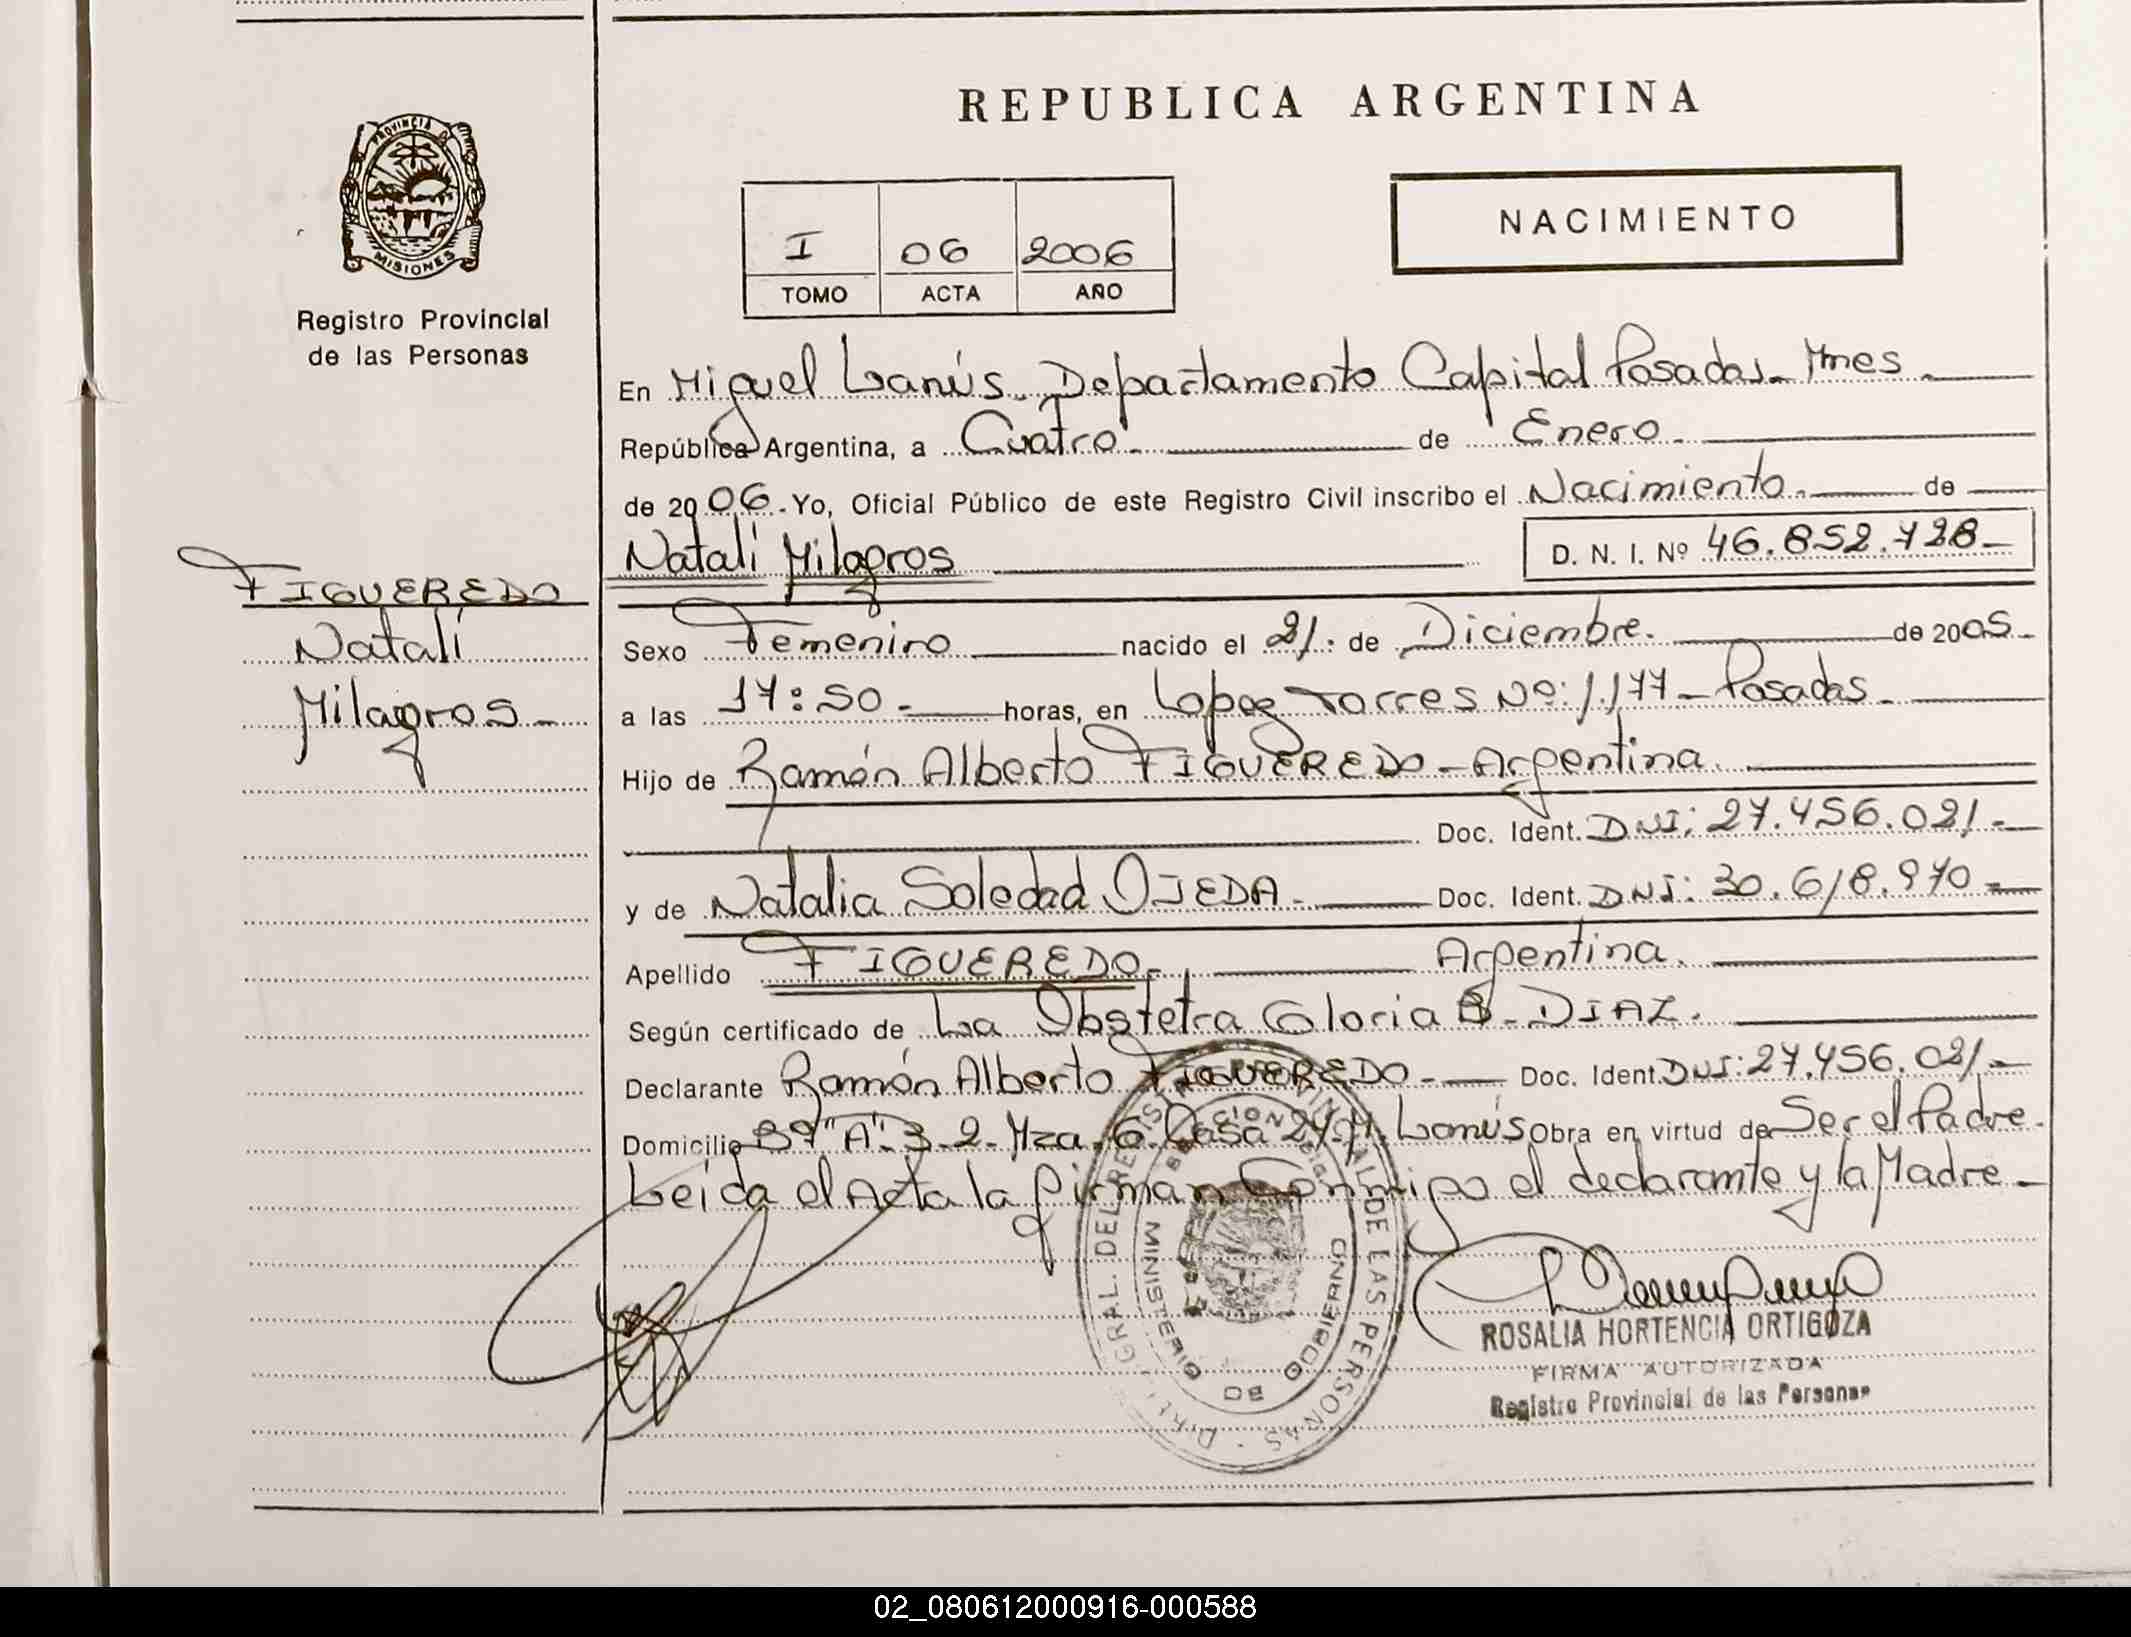 REPUBLICA ARGENTINA
PROVINCIA D
MISIONES
Registro Provincial
de las Personas
NACIMIENTO
I 06 2006
TOMO ACTA AÑO
En Miguel Lanús. Departamento Capital Posadas. Mnes.
República Argentina, a Cuatro. de Enero.
de 2006. Yo, Oficial Público de este Registro Civil inscribo el Nacimiento. de
Natalí Milagros D. N. I. Nº 46.852.728
FIGUEREDO
Natalí
Milagros
Sexo Femenino nacido el 21. de Diciembre. de 2005.
a las 17:50. horas, en Lopez Torres Nº: 1.177 - Posadas.
Hijo de Ramón Alberto FIGUEREDO - Argentina.
Doc. Ident. DNI: 27.456.021.
y de Natalia Soledad OJEDA. Doc. Ident. DNI: 30.618.970
Apellido FIGUEREDO. Argentina.
Según certificado de La Obstetra Gloria B. DIAZ.
Declarante Ramón Alberto FIGUEREDO. Doc. Ident. DNI: 27.456.021.
Domicilio "A". 3. 2. Mza. 6. Casa Lanús Obra en virtud de Ser el Padre.
Leída el Acta la firman Conmigo el declarante y la Madre.
GRAL. DEL DE LAS PERSONAS
MINISTERIO DE GOBIERNO
ROSALIA HORTENCIA ORTIGOZA
FIRMA AUTORIZADA
Registro Provincial de las Personas
02_080612000916-000588